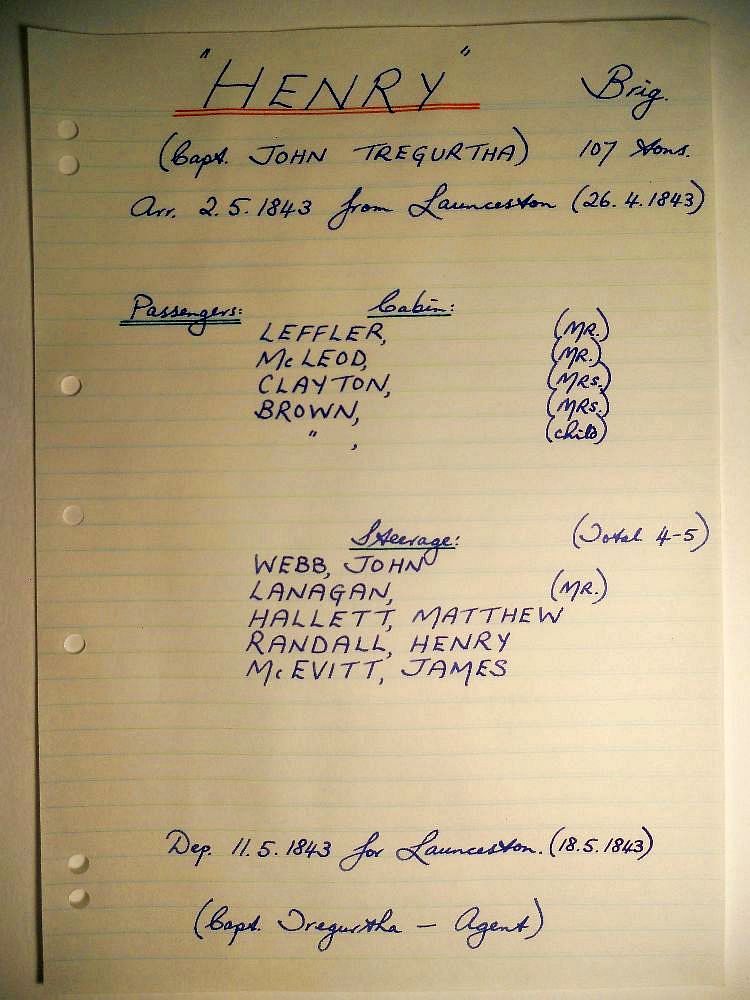 "HENRY" Brig.
(Capt. JOHN TREGURTHA) 107 tons.
Arr. 2.5.1843 from Launceston (26.4.1843)
Passengers: Cabin:
LEFFLER, (MR.)
McLEOD, (MR.)
CLAYTON, (MRS.)
BROWN, (MRS.)
" , (child)
Steerage: (Total 4-5)
WEBB, JOHN
LANAGAN, (MR.)
HALLETT, MATTHEW
RANDALL, HENRY
McEVITT, JAMES
Dep. 11.5.1843 for Launceston. (18.5.1843)
(Capt. Tregurtha – Agent)